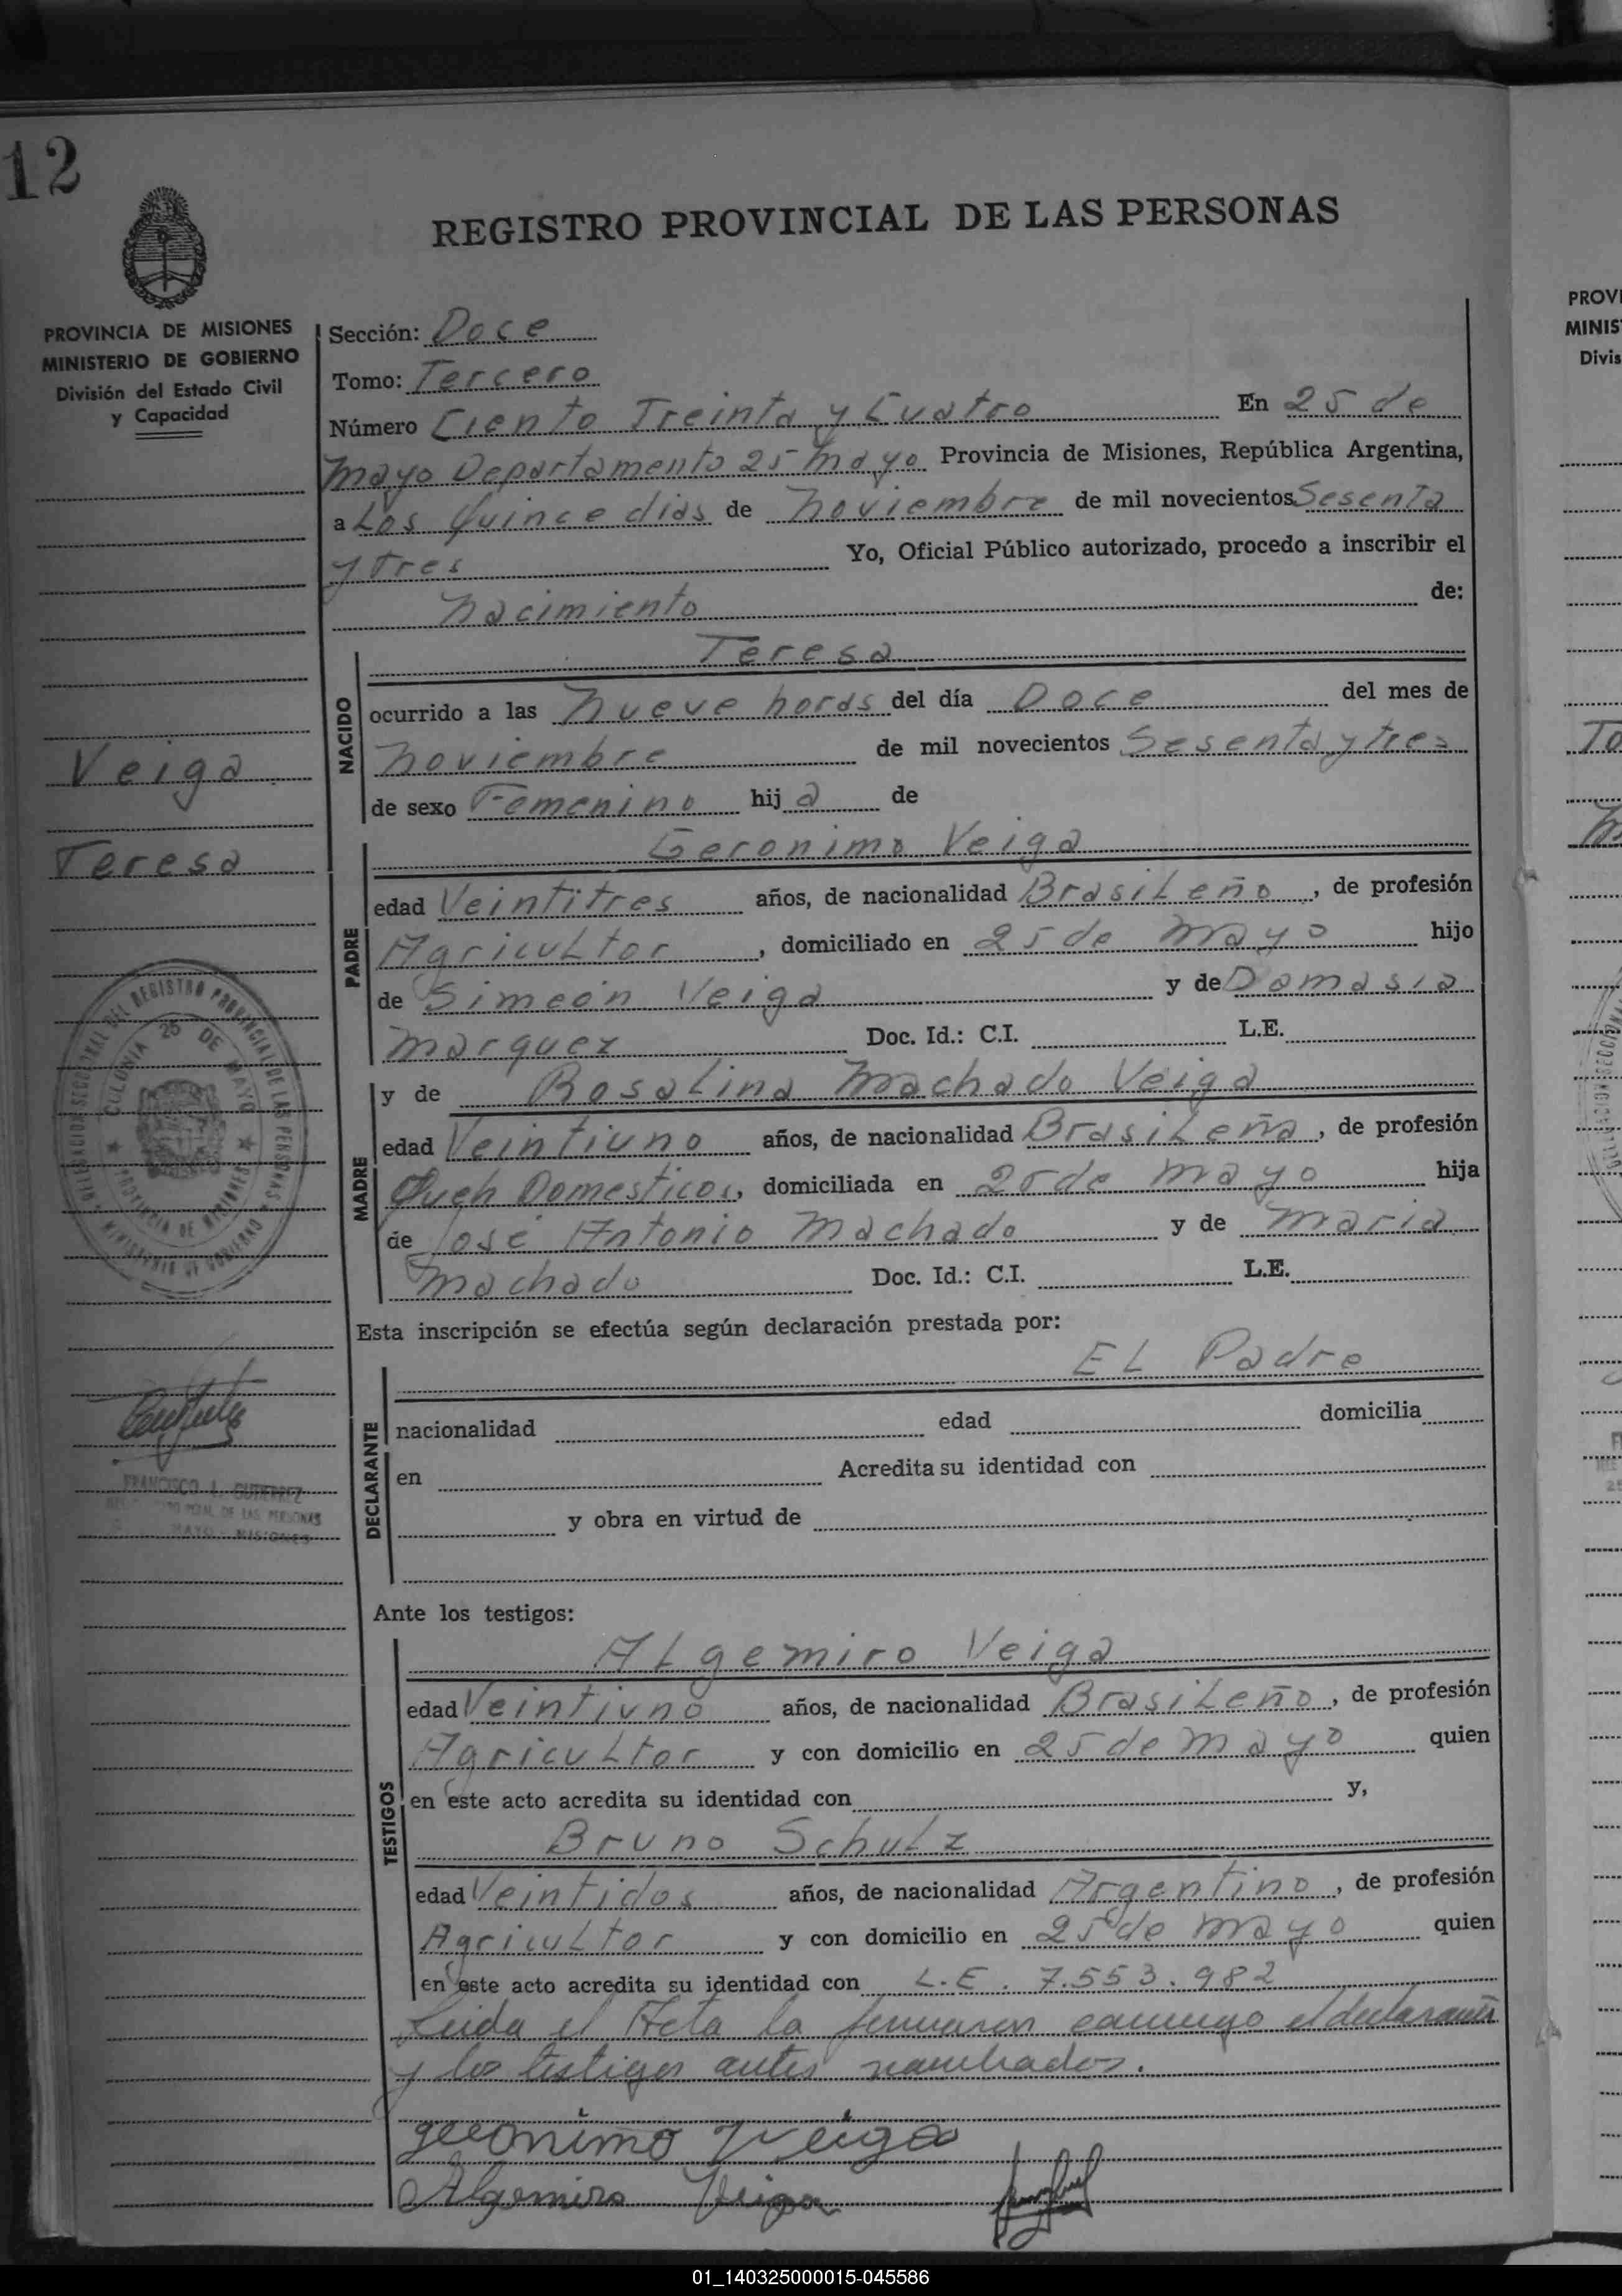 12
REGISTRO PROVINCIAL DE LAS PERSONAS
PROVINCIA DE MISIONES
MINISTERIO DE GOBIERNO
División del Estado Civil
y Capacidad
Sección: Doce
Tomo: Tercero
Número Ciento Treinta y Cuatro En 25 de
mayo Departamento 25 mayo Provincia de Misiones, República Argentina,
a Los Quince dias de noviembre de mil novecientos Sesenta
y tres Yo, Oficial Público autorizado, procedo a inscribir el
nacimiento de:
Veiga
Teresa
NACIDO
Teresa
ocurrido a las nueve horas del día Doce del mes de
noviembre de mil novecientos Sesenta y tres
de sexo Femenino hij a de
PADRE
Geronimo Veiga
edad Veintitres años, de nacionalidad BrasiLeño, de profesión
AgricuLtor, domiciliado en 25 de mayo hijo
de Simeón Veiga y de Damasia
marquez Doc. Id.: C.I. L.E.
MADRE
y de RosaLina machado Veiga
edad Veintiuno años, de nacionalidad BrasiLeña, de profesión
Queh Domesticos, domiciliada en 25 de mayo hija
de José Antonio machado y de maria
machado Doc. Id.: C.I. L.E.
Esta inscripción se efectúa según declaración prestada por:
DECLARANTE
EL Padre
nacionalidad edad domicilia
en Acredita su identidad con
y obra en virtud de
COLONIA 25 DE MAYO
PROVINCIA DE MISIONES
MINISTERIO DE GOBIERNO
FRANCISCO I. GUTIERREZ
DE LAS PERSONAS
MAYO - MISIONES
Ante los testigos:
TESTIGOS
ALgemiro Veiga
edad Veintiuno años, de nacionalidad BrasiLeño, de profesión
AgricuLtor y con domicilio en 25 de mayo quien
en este acto acredita su identidad con y,
Bruno SchuLz
edad Veintidos años, de nacionalidad Argentino, de profesión
AgricuLtor y con domicilio en 25 de mayo quien
en este acto acredita su identidad con L.E. 7.553.982
Leida el Acta la firmaron conmigo el declarante
y los testigos antes nombrados.
geronimo Veiga
Algemiro Veiga
PROVI
MINIS
Divis
To
01_140325000015-045586